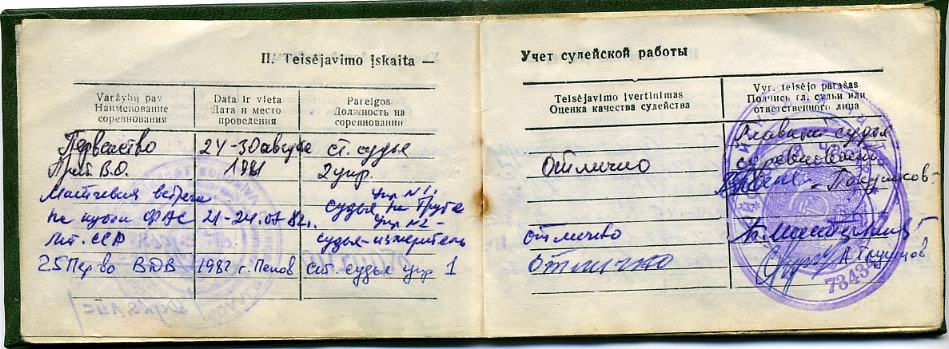 II. Teisėjavimo įskaita —
Varžybų pav
Наименование
соревнования
Data ir vieta
Дата и место
проведения
Pareigos
Должность на
соревновании
Первенство
24-30 августа
ст. судья
Приб В.О.
1981
2 упр.
Матчевая встреча
упр №1,
на кубок ФАС
21-24.07.82г.
судья на
Лит. ССР
упр №2
судья-измеритель
25 Перво ВДВ
1982 г. Псков
ст. судья упр 1
Учет сулейской работы
Teisėjavimo įvertinimas
Оценка качества сулейства
Vyr. teisėjo parašas
Подпись гл. судьи или
ответственного лица
отлично
Главный судья
соревнований
отлично
отлично